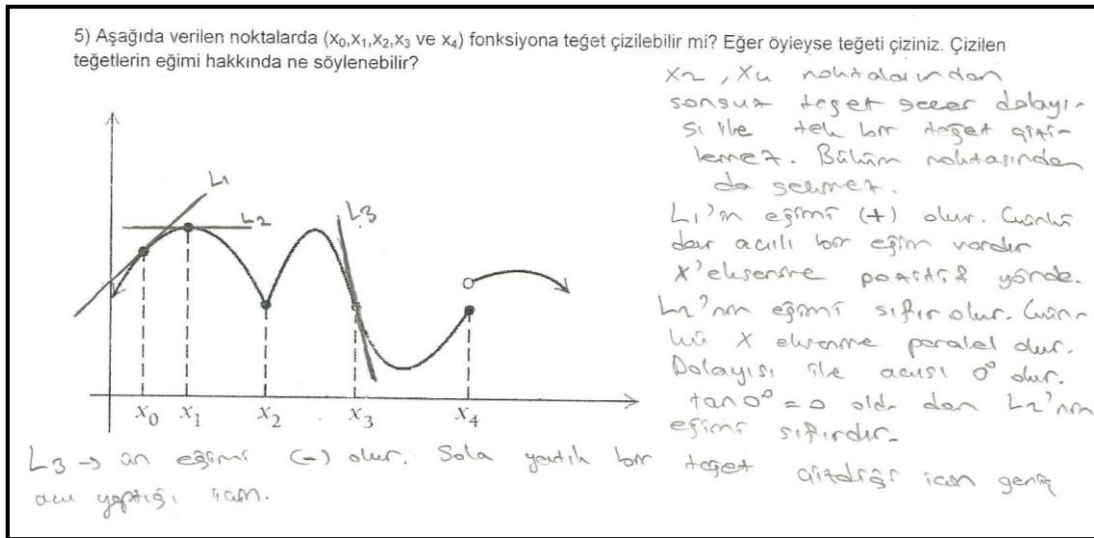 5) Aşağıda verilen noktalarda (x₀,x₁,x₂,x₃ ve x₄) fonksiyona teğet çizilebilir mi? Eğer öyleyse teğeti çiziniz. Çizilen
teğetlerin eğimi hakkında ne söylenebilir?
x2, x4 noktalarından
sonsuz teğet geçer dolayı-
sı ile tek bir teğet çizi-
lemez. Bölüm noktasından
da geçmez.
L1'in eğimi (+) olur. Çünkü
dar açılı bir eğim vardır
X'eksenine pozitif yönde.
L2'nin eğimi sıfır olur. Çün-
kü X eksenine paralel olur.
Dolayısı ile açısı 0° olur.
tan0° = 0 oldğ dan L2'nin
eğimi sıfırdır.
L1
L2
L3
x₀ x₁ x₂ x₃ x₄
L3 → ün eğimi (-) olur. Sola yatık bir teğet çizildiği için geniş
açı yaptığı için.